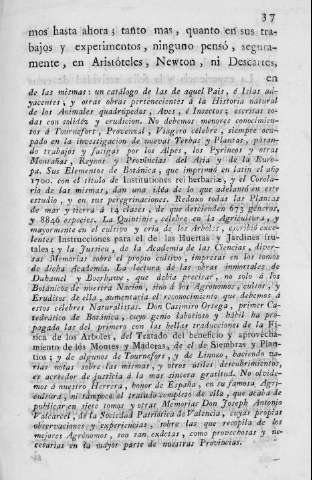 37
mos hasta ahora; tanto mas, quanto en sus tra-
bajos y experimentos, ninguno pensó, segura-
mente, en Aristóteles, Newton, ni Descartes,
en
de las mismas: un catálogo de las de aquel Pais, é Islas ad-
yacentes, y otras obras pertenecientes á la Historia natural
de los Animales quadrúpedos, Aves, é Insectos; escritas to-
das con solidéz y erudicion. No debemos menores conocimien-
tos á Tournefort, Provenzal, Viagero célebre, siempre ocu-
pado en la investigacion de nuevas Yerbas y Plantas, pasan-
do trabajos y fatigas por los Alpes, los Pyrineos y otras
Montañas, Reynos y Provincias del Asia y de la Euro-
pa. Sus Elementos de Botánica, que imprimió en latin el año
1700. con el título de Instituciones rei herbariae, y el Corola-
rio de las mismas, dan una idéa de lo que adelantó en este
estudio, y en sus peregrinaciones. Reduxo todas las Plantas
de mar y tierra á 14 clases, de que descienden 673 géneros,
y 8846 especies. La Quintinie, célebre en la Agricultura, y
mayormente en el cultivo y cria de los Arboles, escribió exce-
lentes Instrucciones para el de las Huertas y Jardines fru-
tales; y la Jussieu, de la Academia de las Ciencias, diver-
sas Memorias sobre el propio cultivo, impresas en los tomos
de dicha Academia. La lectura de las obras inmortales de
Duhamel y Boerhave, que debia precisar, no solo á los
Botánicos de nuestra Nacion, sino á los Agrónomos, cultos, y
Eruditos de ella, aumentaria el reconocimiento que debemos á
estos célebres Naturalistas. Don Casimiro Ortega, primer Ca-
tedrático de Botánica, cuyo genio laborioso y hábil ha pro-
pagado las del primero con las bellas traducciones de la Fí-
sica de los Arboles, del Tratado del beneficio y aprovecha-
miento de los Montes y Maderas, de el de Siembras y Plan-
tíos; y de algunos de Tournefort, y de Linneo, haciendo va-
rias notas sobre las mismas, y otros utiles descubrimientos,
es acreedor de justicia á la mas sincera gratitud. No olvide-
mos á nuestro Herrera, honor de España, en su famosa Agri-
cultura, ni tampoco el tratado completo de ella, que acaba de
publicar en siete tomos y otras Memorias Don Joseph Antonio
Valcarcel, de la Sociedad Patriótica de Valencia, cuyas propias
observaciones y experiencias, sobre las que recopila de los
mejores Agrónomos, son tan exâctas, como provechosas y ne-
cesarias en la mayor parte de nuestras Provincias.